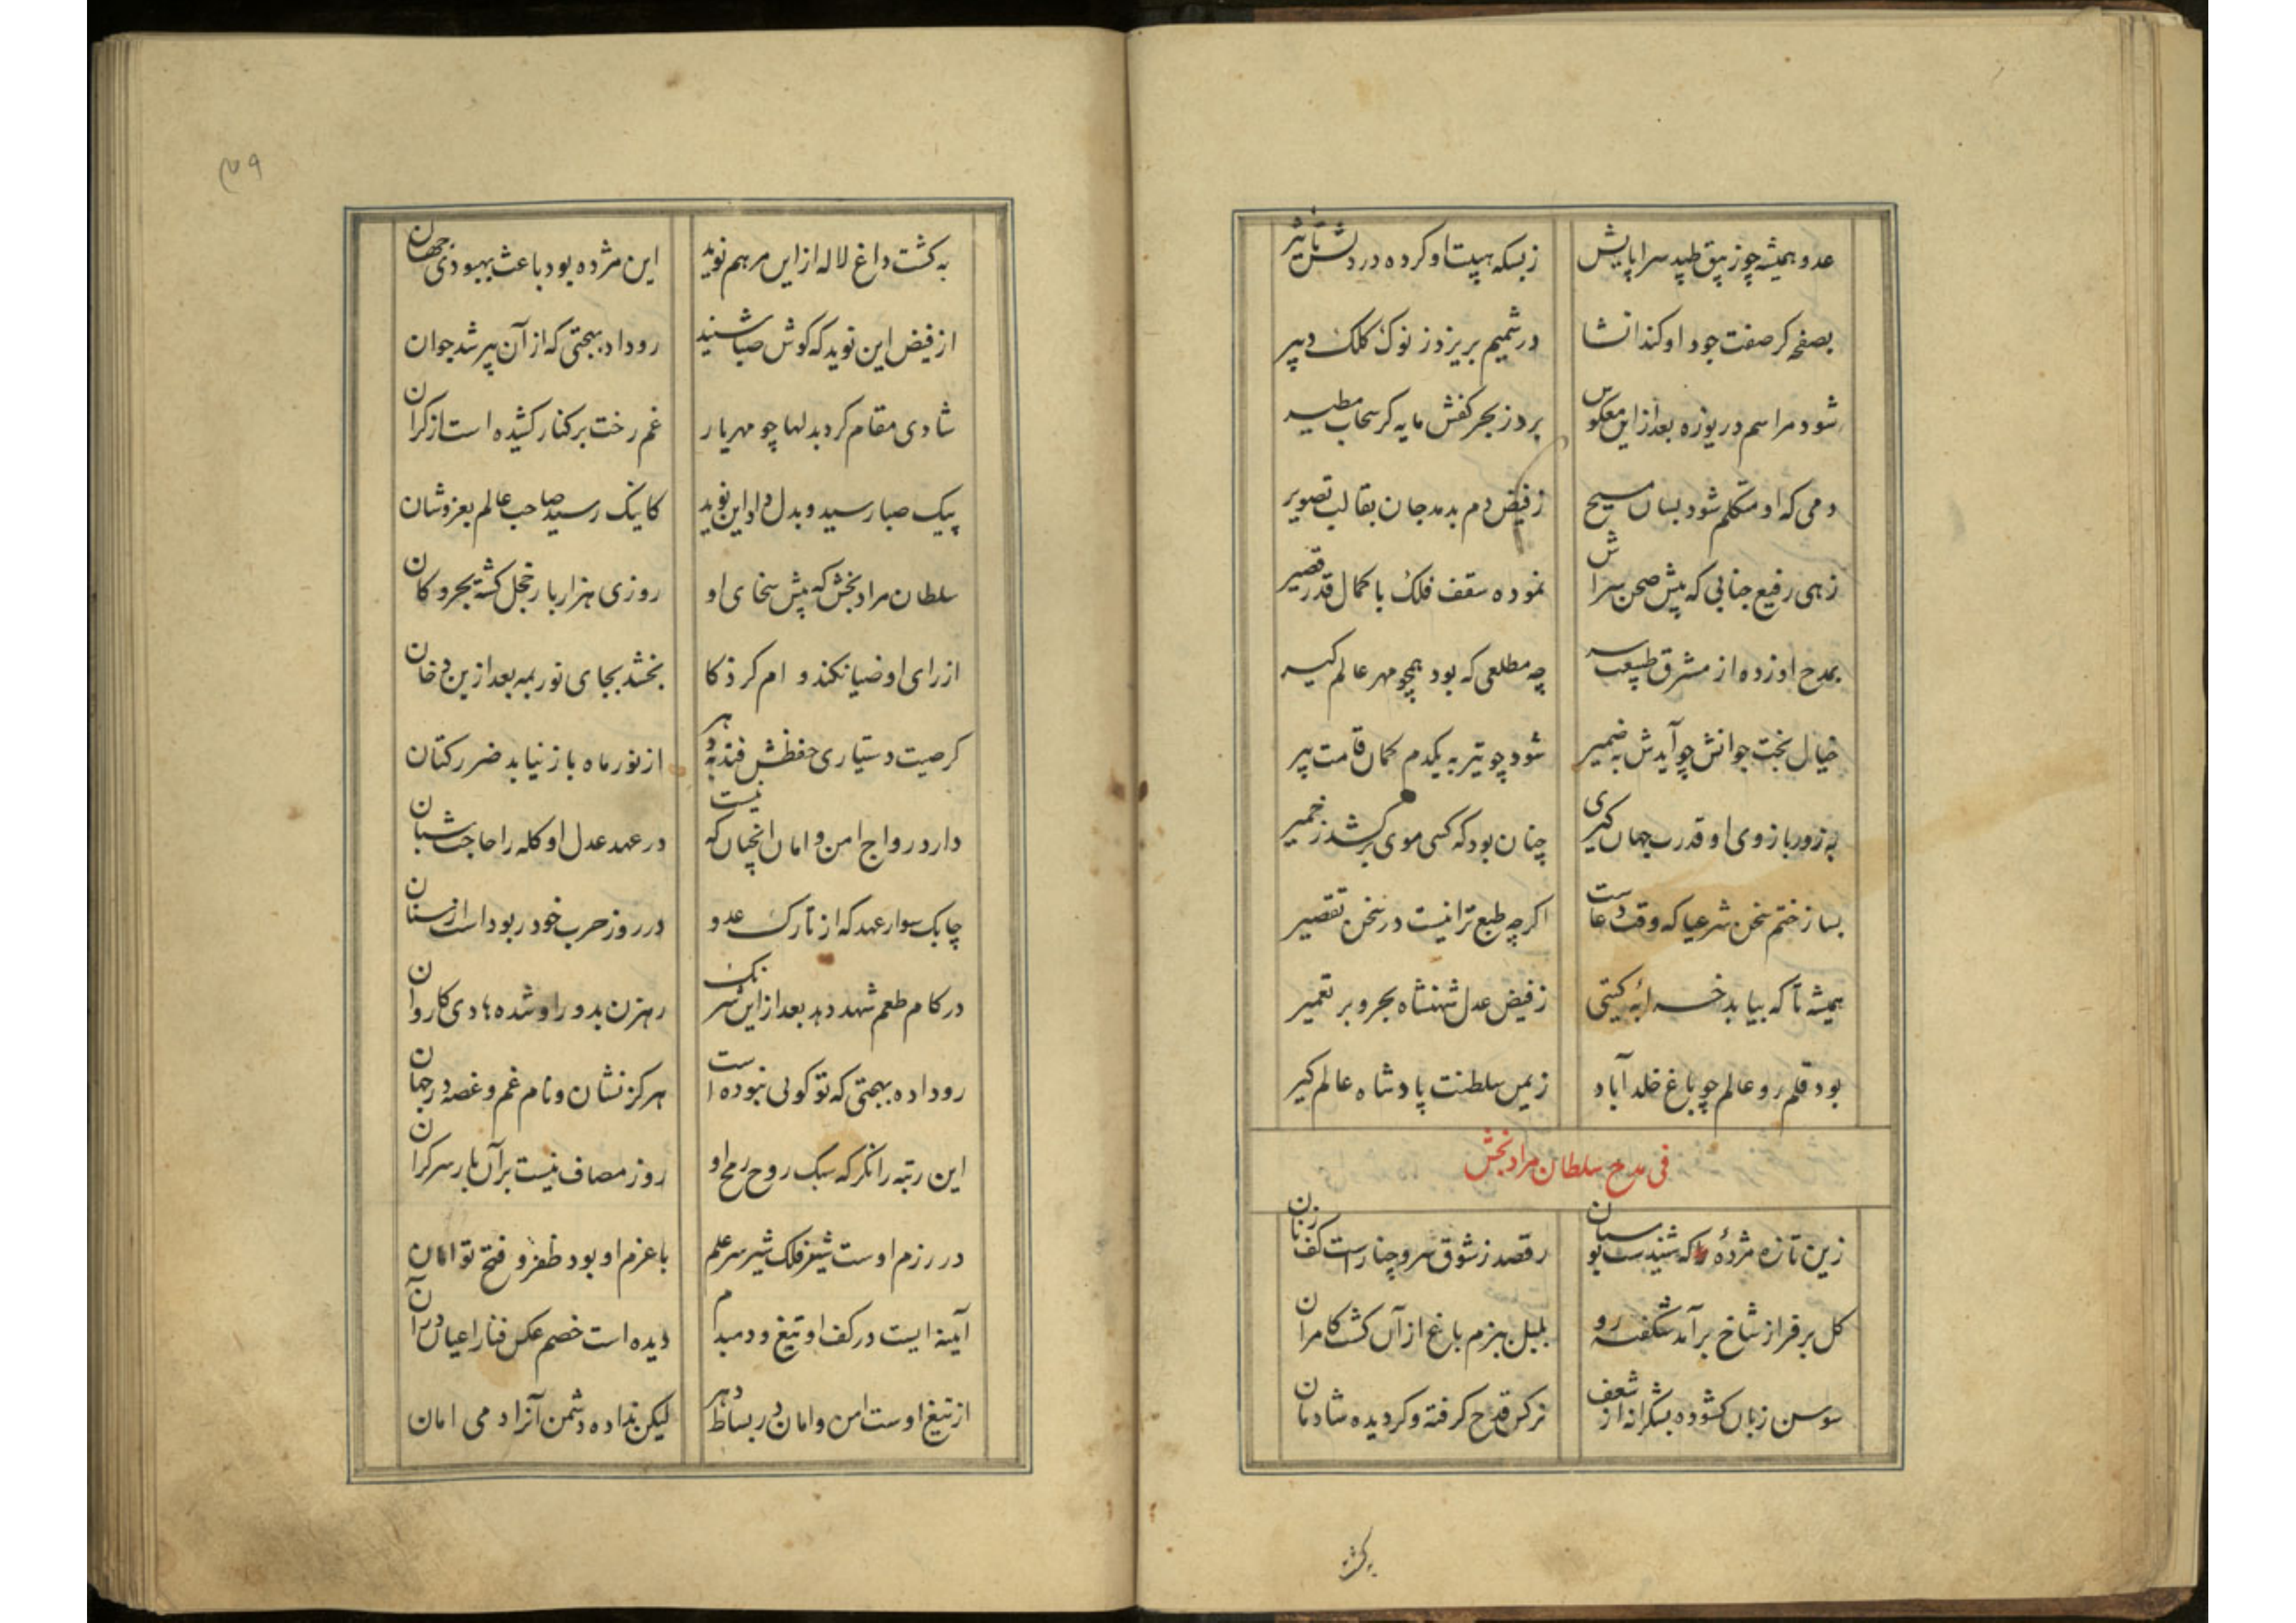 عدو همیشه چو زیبق طپد سراپایش زبسکه هیبت او کرده در دلش تأثیر
بصفحه کر صفت جود او کند انشا در شمیم بریزد ز نوک کلک دبیر
شود مراسم دریوزه بعد ازین معکوس برد ز بحر کفش مایه کر سحاب مطیر
دمی که او متکلم شود بسان مسیح زفیض دم بدمد جان بقالب تصویر
زهی رفیع جنابی که پیش صحن سراش نموده سقف فلک با کمال قدر قصیر
بمدح او زده از مشرق طبیعت سر چه مطلعی که بود همچو مهر عالم کیر
خیال بخت جوانش چو آیدش به ضمیر شود چو تیر به یکدم کمان قامت پیر
به زور بازوی او قدرت جهان کیری چنان بود که کسی موی برکشد ز خمیر
بساز ختم سخن شرعیا که وقت دعاست اکرچه طبع ترا نیست در سخن تقصیر
همیشه تا که بیابد خرابه کیتی زفیض عدل شهنشاه بحر و بر تعمیر
بود قلمرو عالم چو باغ خلد آباد زیمن سلطنت پادشاه عالم کیر
فی مدح سلطان مرادبخش
زین تازه مژدهٔ که شنیدست بوستان رقصد زشوق سرو چنارست کف زنان
کل بر فراز شاخ برآمد شکفته رو بلبل ببزم باغ از آن کشت کامران
سوسن زبان کشوده بشکرانه از شعف نرکس قدح کرفته و کردیده شادمان
به کشت
۴۹
به کشت داغ لاله از این مرهم نوید این مژده بود باعث بهبودی جهان
از فیض این نوید که کوش صبا شنید روداد بهجتی که از آن پیر شد جوان
شادی مقام کرد بدلها چو مهر یار غم رخت بر کنار کشیده است از کران
پیک صبا رسید و بدل داد این نوید کاینک رسید صاحب عالم بعز و شان
سلطان مرادبخش که پیش سخای او روزی هزار بار خجل کشته بحر و کان
از رای او ضیا نکند وام کر ذکا بخشد بجای نور بمه بعد ازین دخان
کر صیت دستیاری حفظش فتد به دهر از نور ماه باز نیابد ضرر کتان
دارد رواج امن و امان انچنان که نیست در عهد عدل او کله را حاجت شبان
چابک سوار عهد که از تارک عدو در روز حرب خود ربوداست از سنان
در کام طعم شهد دهد بعد ازاین شرنک رهزن بدور او شده هادی کاروان
روداده بهجتی که تو کوئی نبوده است هرکز نشان و نام غم و غصه در جهان
این رتبه را نکر که سبک روح رمح او روز مصاف نیست بر آن بار سر کران
در رزم اوست شیر فلک شیر سر علم با عزم او بود ظفر و فتح توامان
آیینه ایست در کف او تیغ و دمبدم دیده است خصم عکس فنا را عیان در آن
از تیغ اوست امن و امان در بساط دهر لیکن نداده دشمن آنرا دمی امان